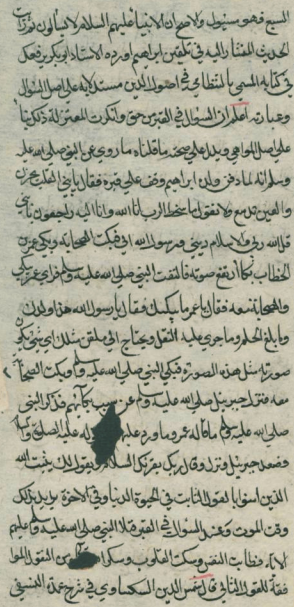 السبع فهو مسئول والاصح ان الانبيا عليهم السلام لا يسألون وورد
الحديث المشار اليه في تلقين ابراهيم اورده الاستاذ ابو بكر بن فورك
في كتابه المسمي بالنظامي في اصول الدين مستدلا به على اصل السؤال
وعبارته اعلم ان السؤال في القبر حق وانكرت المعتزلة ذلك بنا
على اصلهم الواهي ويدل على صحة ما قلناه ما روي عن النبي صلى الله عليه
وسلم انه لما دفن ولده ابراهيم وقف على قبره فقال يا بني القلب يحزن
والعين تدمع ولا نقول ما يسخط الرب انا لله وانا اليه راجعون يا بني
قل الله ربي والاسلام ديني ورسول الله ابي فبكت الصحابة وبكى عمر بن
الخطاب بكا ارتفع صوته فالتفت النبي صلى الله عليه وسلم فراى عمر يبكي
والصحابة معه فقال يا عمر ما يبكيك فقال يا رسول الله هذا ولدك
وما بلغ الحلم وما جرى عليه القلم ويحتاج الى ملقن مثلك
مثل هذه الصورة فبكى النبي صلى الله عليه وسلم وبكت الصحابة
معه فنزل جبريل صلى الله عليه وسلم عن سبب بكائهم فذكر النبي
صلى الله عليه وسلم ما قاله عمر وما ورد عليهم عليه الصلاة والسلام
وصعد جبريل ونزل وقال ربك يقرئك السلام ويقول لك يثبت الله
الذين امنوا بالقول الثابت في الحيوة الدنيا وفي الاخرة يريد بذلك
وقت الموت وعند السؤال في القبر فتلا النبي صلى الله عليه وسلم عليهم
الاية فطابت النفوس وسكنت القلوب وشكروا
فقال شمس الدين السكساوي في شرح عمدة النسفي